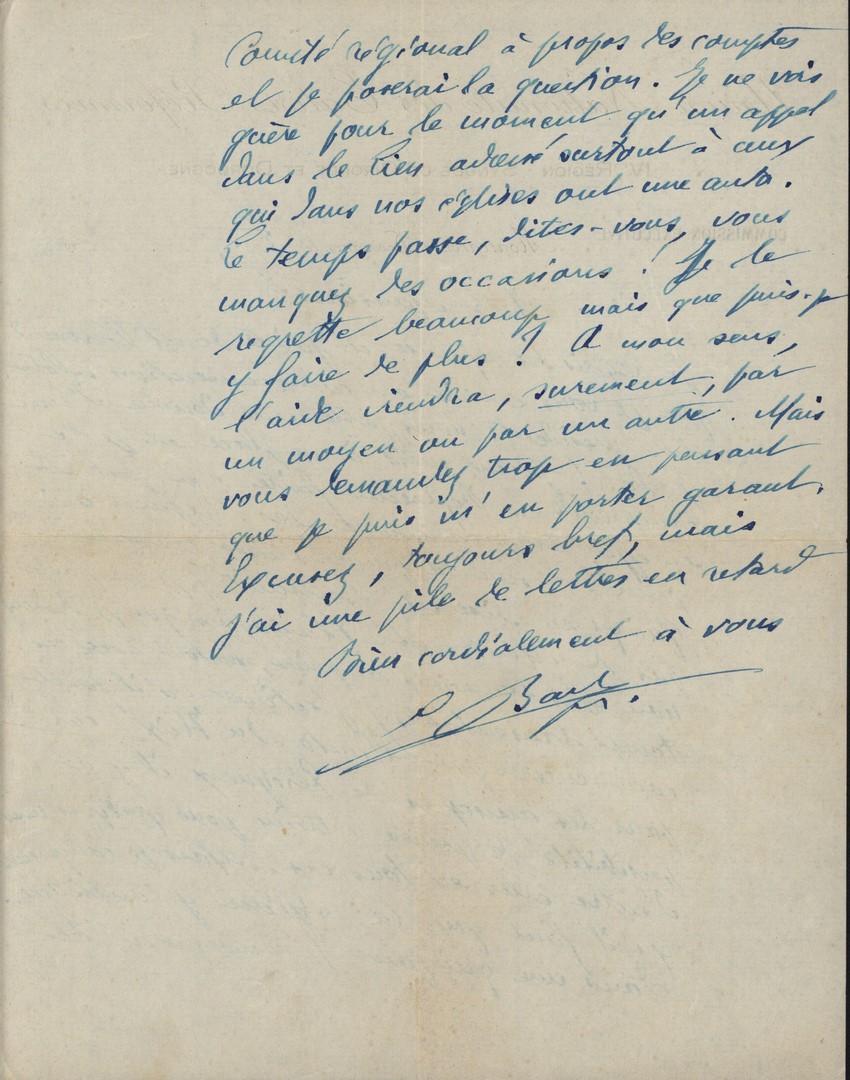 Comité régional à propos des comptes
et je poserai la question. Je ne vois
guère pour le moment qu'un appel
dans le Lien adressé surtout à ceux
qui dans nos églises ont une auto.
Le temps passe, dites-vous, vous
manquez des occasions ! Je le
regrette beaucoup mais que puis-je
y faire de plus ? A mon sens,
l'aide viendra, surement, par
un moyen ou par un autre. Mais
vous demandez trop en pensant
que je puis m'en porter garant.
Excusez, toujours bref, mais
j'ai une pile de lettres en retard
Bien cordialement à vous